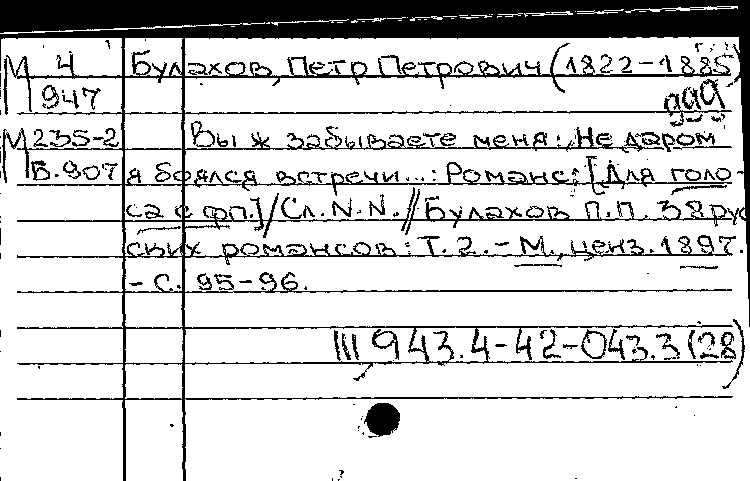 М 4 Булахов, Петр Петрович (1822-1885)
947
ддд
М 235-2 Вы ж забываете меня: „Не даром
Б.907 я боялся встречи...: Романс; [Для голо-
са с фп.]/Сл. N.N.//Булахов П.П. 38 рус
ских романсов: Т. 2. - М., ценз. 1897.
- С. 95-96.
III 943.4-42-043.3(28)